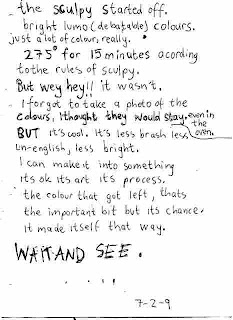 the sculpy started off.
bright lumo (debatable) colours.
just a lot of colour, really.
275° for 15 minutes acording
to the rules of sculpy.
But wey hey!! it wasn't.
I forgot to take a photo of the
colours, I thought they would stay. even in the oven.
BUT it's cool. It's less brash less
un-english, less bright.
I can make it into something
its ok its art its process.
the colour that got left, thats
the important bit but its chance.
it made itself that way.
WAIT AND SEE.
. . . . .
7-2-9